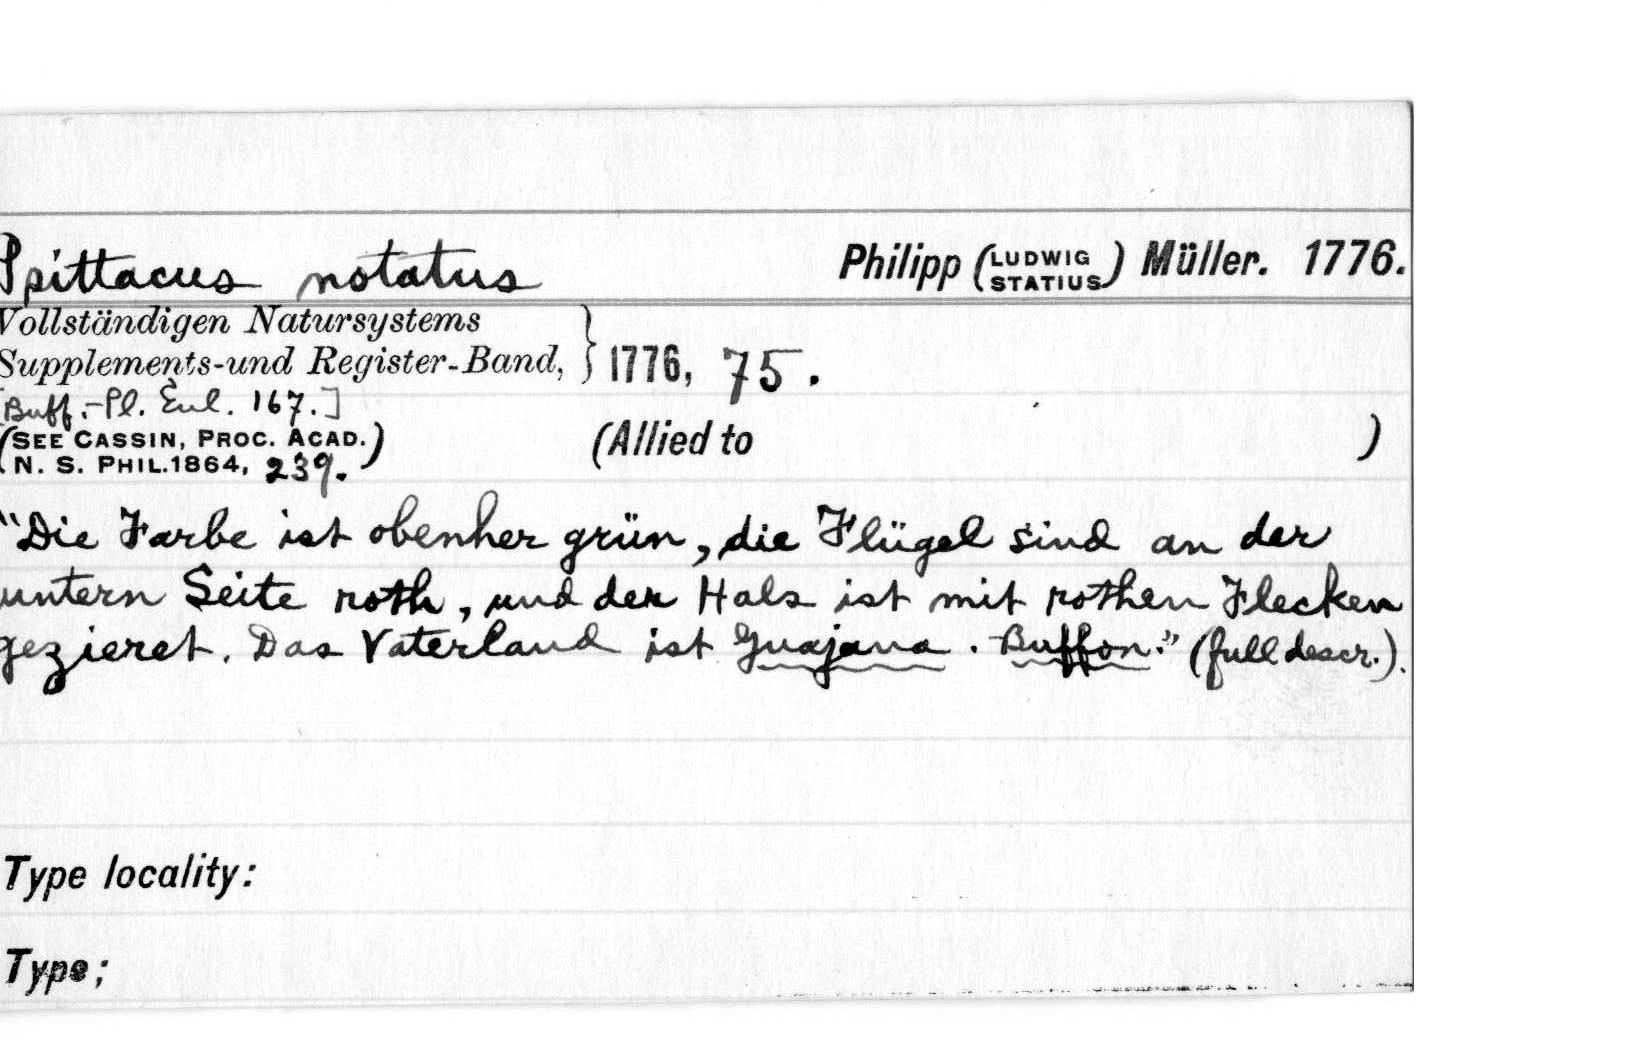 Psittacus notatus Philipp (LUDWIG STATIUS) Müller. 1776.
Vollständigen Natursystems
Supplements-und Register-Band, } 1776, 75.
[Buff.-Pl. Enl. 167.]
(SEE CASSIN, PROC. ACAD.
N. S. PHIL. 1864, 239.) (Allied to )
"Die Farbe ist obenher grün, die Flügel sind an der
untern Seite roth, und der Hals ist mit rothen Flecken
gezieret. Das Vaterland ist Guajana. Buffon." (full descr.).
Type locality:
Type;